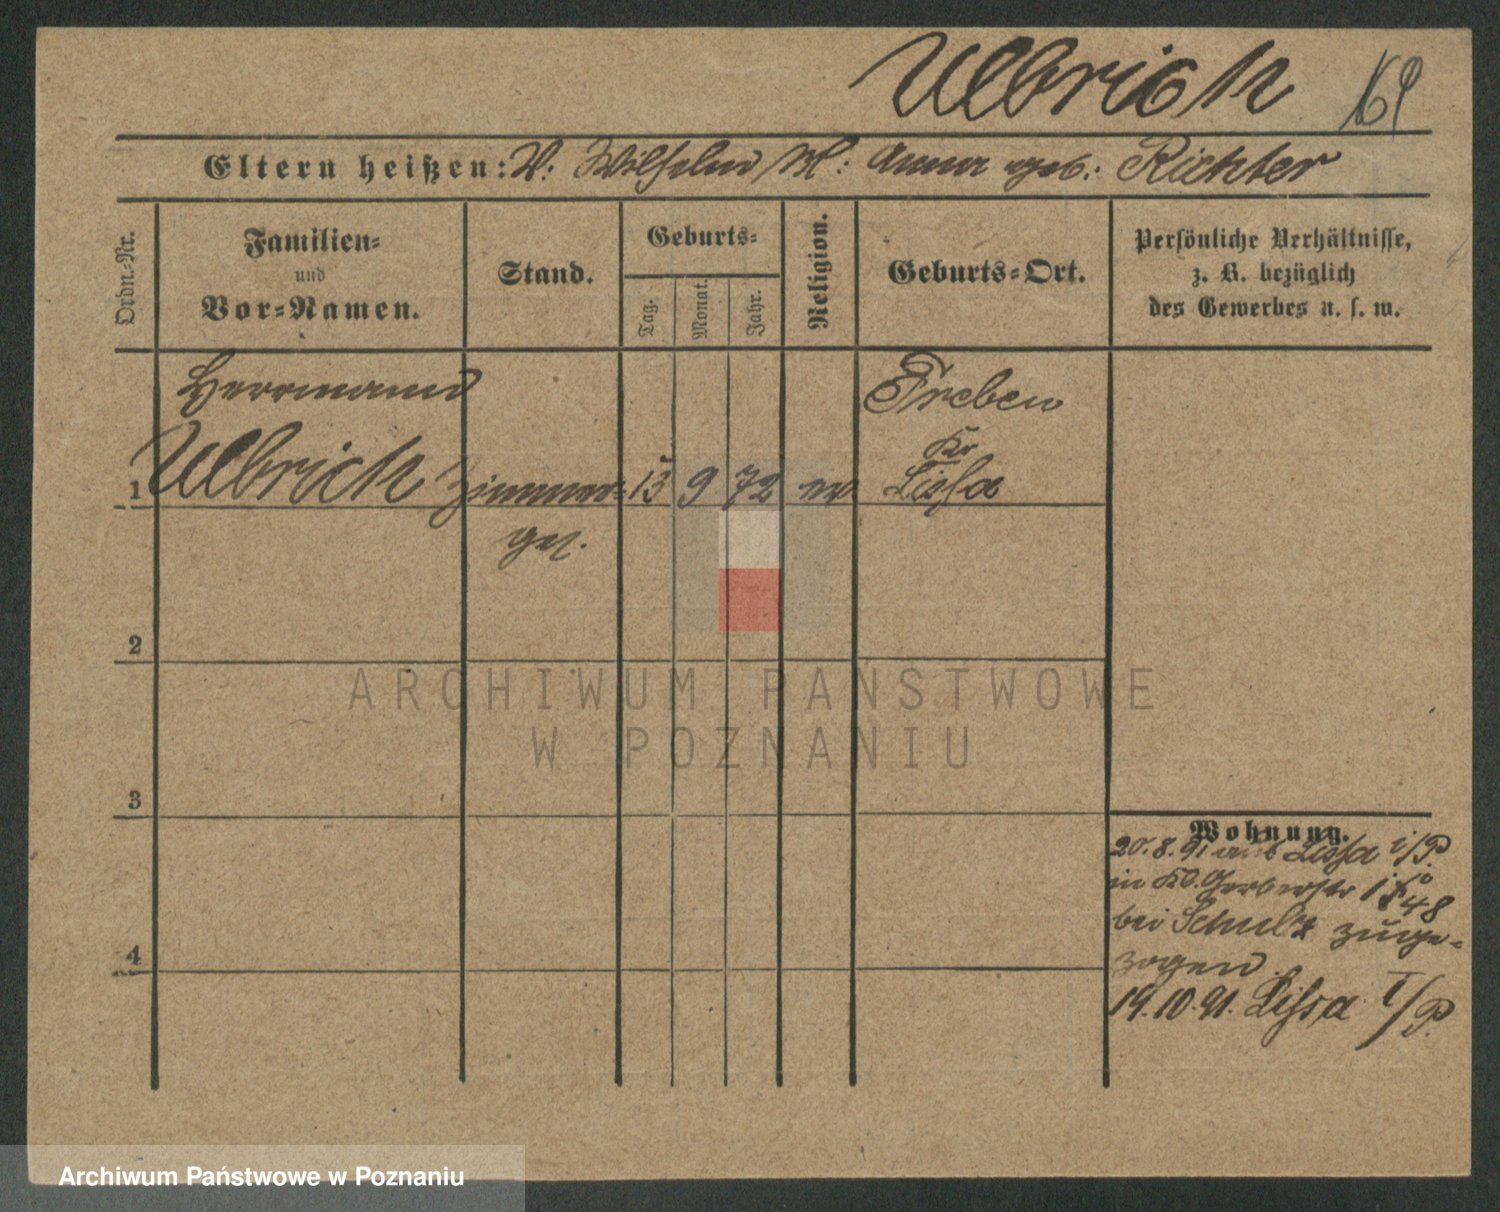 Ulbrich 169
Eltern heißen: V: Wilhelm M: Anna geb: Richter
Ordn.-Nr.
Familien-
und
Vor-Namen.
Stand.
Geburts-
Tag.
Monat.
Jahr.
Religion.
Geburts-Ort.
Persönliche Verhältnisse,
z. B. bezüglich
des Gewerbes u. s. w.
Herrmann
Ulbrich
1
Zimmer-
ges.
15 9 72 ev
Treben
Kr
Lissa
2
3
4
Wohnung.
20.8.91 aus Lissa i/P.
in Kl. Gerberstr
bei Schulz zuge-
zogen
19.10.91. Lissa I/P.
ARCHIWUM PAŃSTWOWE
W POZNANIU
Archiwum Państwowe w Poznaniu